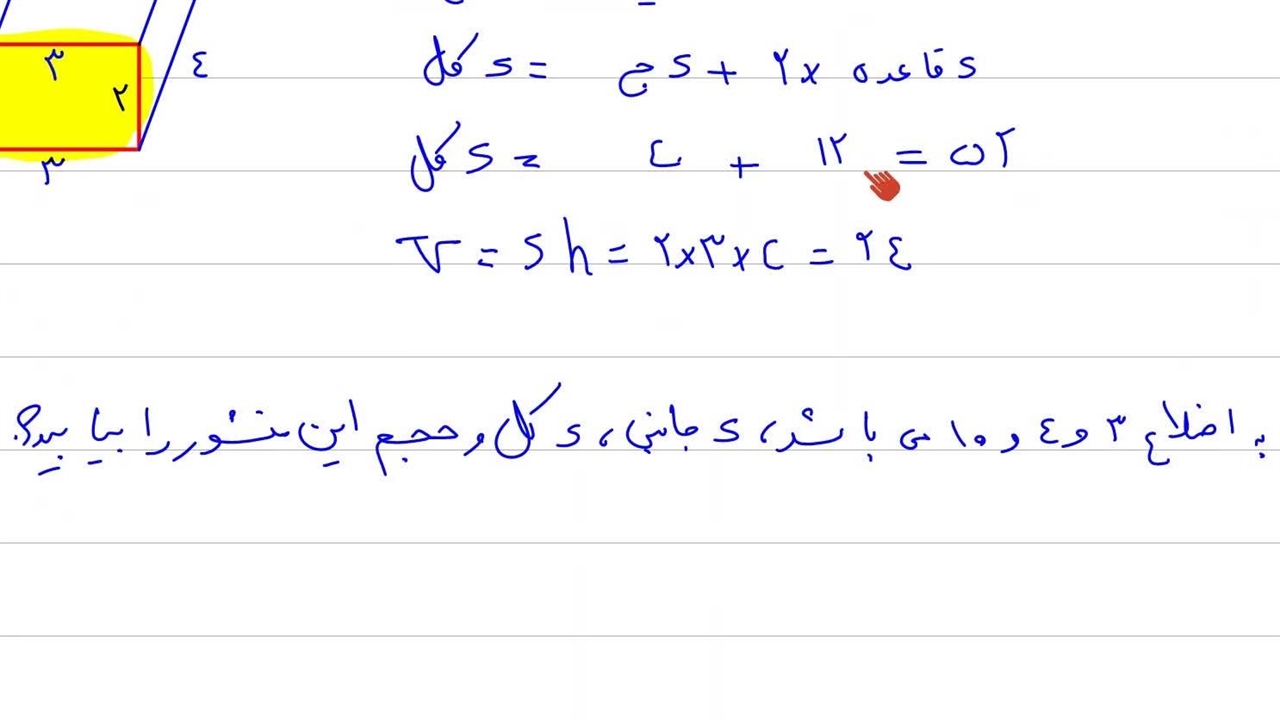 ۳
٤
۲
۳
S کل = S ج + ۲x قاعده S
S کل = ٤٠ + ۱۲ = ۵۲
V = S h = ۲x۳x٤ = ۲٤
به اضلاع ۳ و ٤ و ۱۰ می باشد، S جانبی، S کل و حجم این منشور را بیابید؟